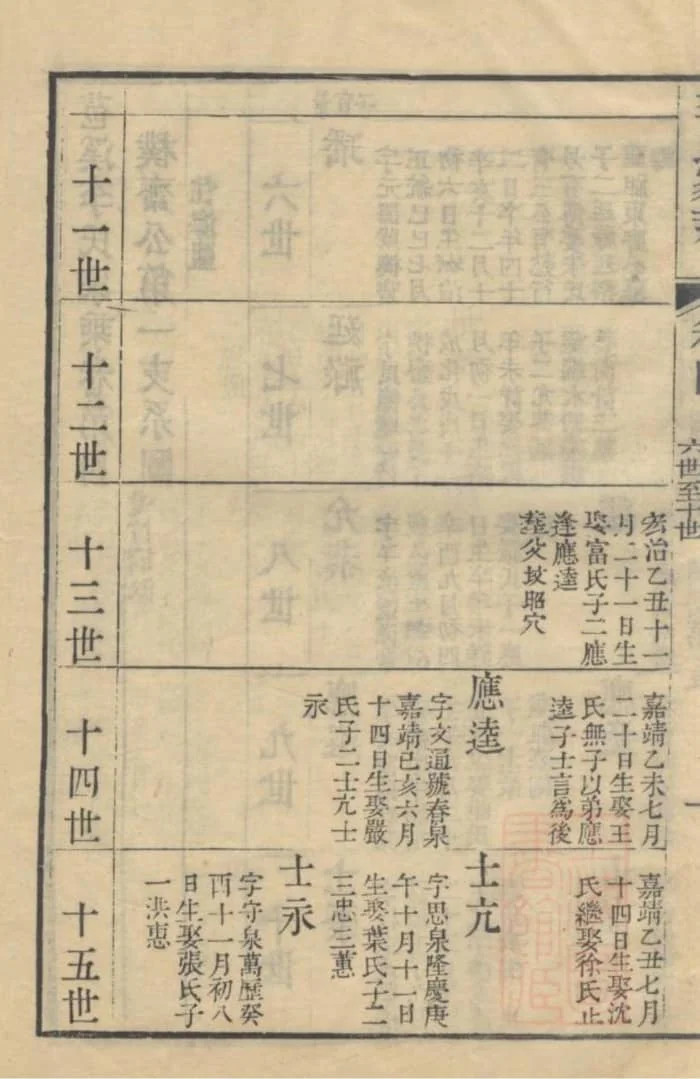 六世至十世
宏治乙丑十一
月二十一日生
娶富氏子二應
逢應逵
葬父坟昭穴
嘉靖乙未七月
二十日生娶王
氏無子以弟應
逵子士言為後
應逵
字文通號春泉
嘉靖己亥六月
十四日生娶嚴
氏子二士亢士
永
嘉靖乙丑七月
十四日生娶沈
氏繼娶徐氏止
士亢
字思泉隆慶庚
午十月十一日
生娶葉氏子二
三忠三蕙
士永
字守泉萬歷癸
酉十一月初八
日生娶張氏子
一洪恵
十一世
十二世
十三世
十四世
十五世